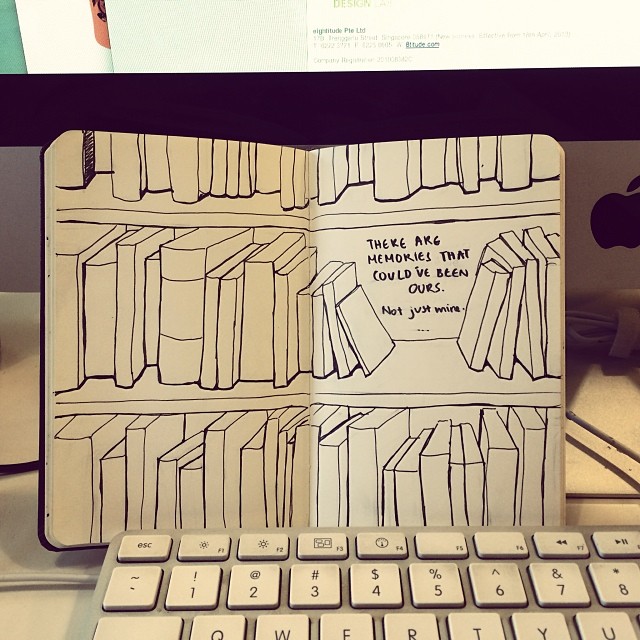 DESIGN
eightitude Pte Ltd
W. 8ttude.com
THERE ARE
MEMORIES THAT
COULD'VE BEEN
OURS.
Not just mine.
...
esc F1 F2 F3 F4 F5 F6 F7
~ ! @ # $ % ^ & *
` 1 2 3 4 5 6 7 8
Q W E R T Y U